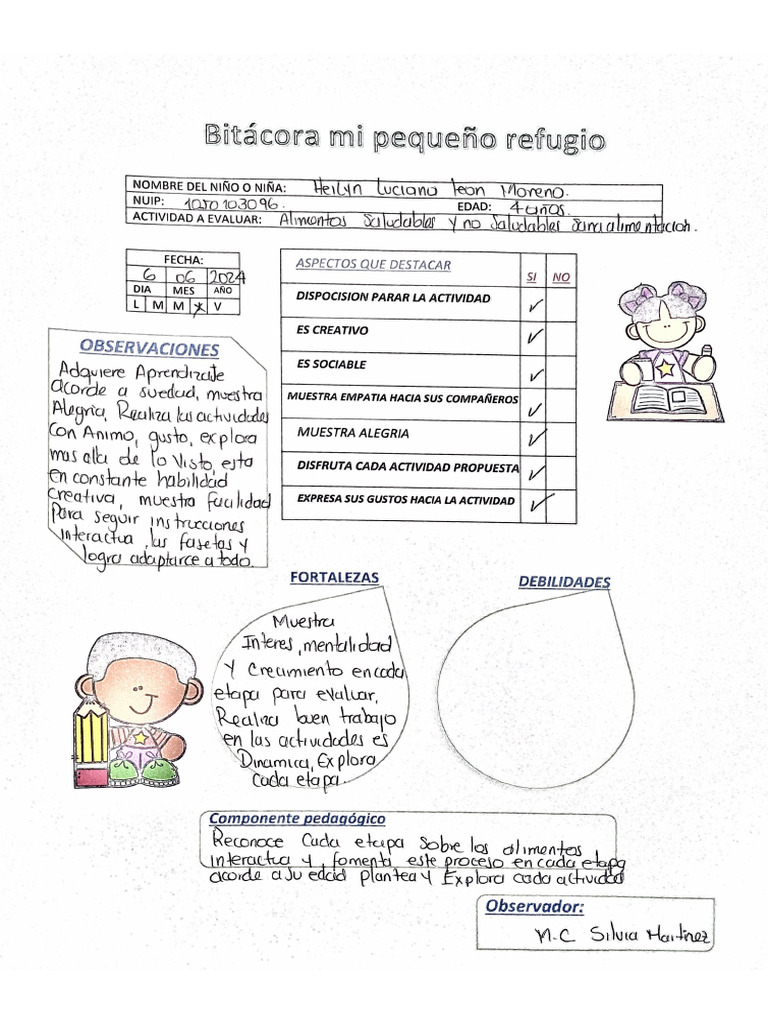 Bitácora mi pequeño refugio
NOMBRE DEL NIÑO O NIÑA: Heilyn Luciana Leon Moreno.
NUIP: 1050103096. EDAD: 4 años.
ACTIVIDAD A EVALUAR: Alimentos Saludables y no Saludables Sana alimentacion.
FECHA:
6 06 2024
DIA MES AÑO
L M M X V
ASPECTOS QUE DESTACAR SI NO
DISPOCISION PARAR LA ACTIVIDAD ✓
ES CREATIVO ✓
ES SOCIABLE ✓
MUESTRA EMPATIA HACIA SUS COMPAÑEROS ✓
MUESTRA ALEGRIA ✓
DISFRUTA CADA ACTIVIDAD PROPUESTA ✓
EXPRESA SUS GUSTOS HACIA LA ACTIVIDAD ✓
OBSERVACIONES
Adquiere Aprendizaje
acorde a suedad, muestra
Alegria, Realiza las actividades
con Animo, gusto, explora
mas alla de lo Visto, esta
en constante habilidad
creativa, muestra facilidad
Para seguir instrucciones
interactua, las fasetas y
logra adaptarce a todo.
FORTALEZAS
Muestra
Interes, mentalidad
Y Crecimiento en cada
etapa para evaluar,
Realiza buen trabajo
en las actividades es
Dinamica, Explora
Cada etapa.
DEBILIDADES
Componente pedagógico
Reconoce Cada etapa Sobre los alimentos
interactua y, fomenta, este proceso en cada etapa
acorde a su edad plantea y Explora cada actividad
Observador:
M.C Silvia Martinez